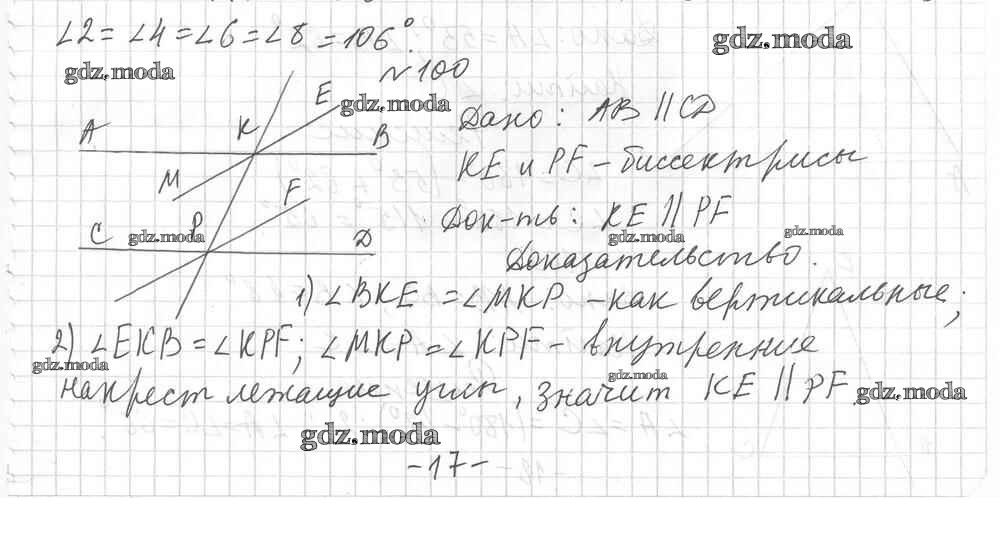 ∠2 = ∠4 = ∠6 = ∠8 = 106°.
gdz.moda
gdz.moda
№100
gdz.moda
A K E B
M F
C P D
gdz.moda
Дано: AB || CD
KE и PF - биссектрисы
Док-ть: KE || PF
gdz.moda
gdz.moda
Доказательство.
1) ∠BKE = ∠MKP - как вертикальные;
2) ∠EKB = ∠KPF; ∠MKP = ∠KPF - внутренние
gdz.moda
gdz.moda
накрест лежащие углы, значит KE || PF
gdz.moda
gdz.moda
-17-